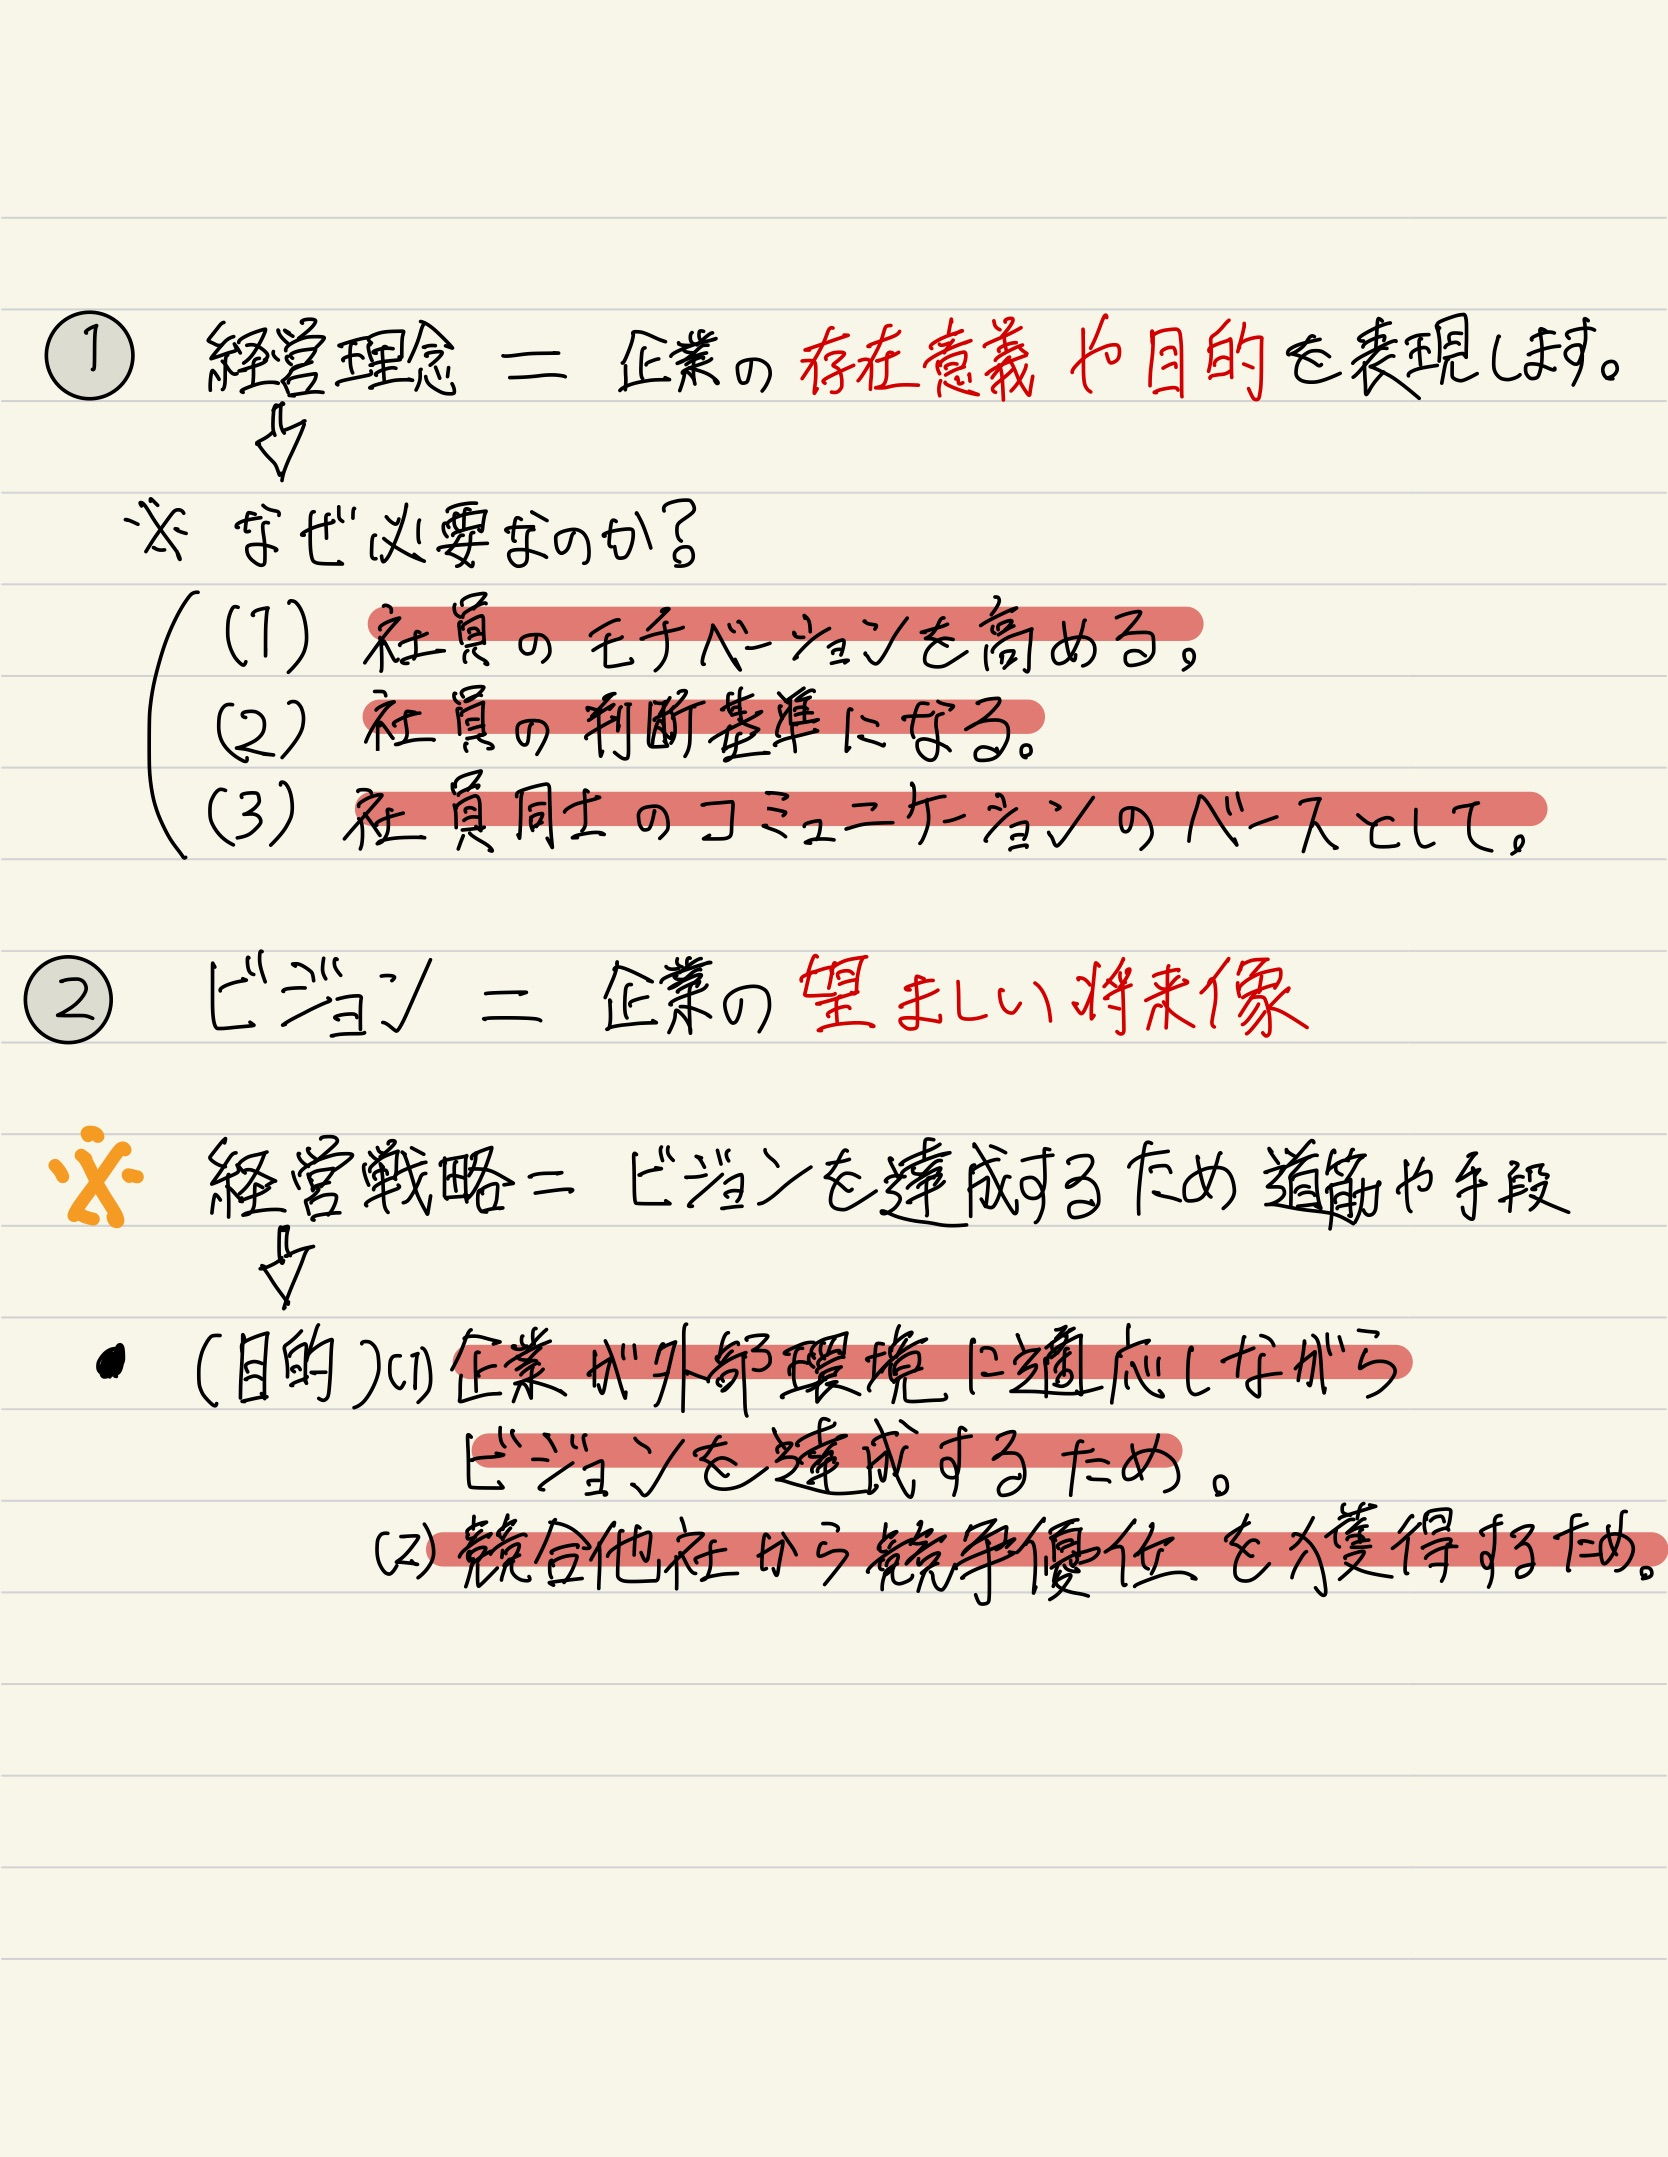 ① 経営理念 = 企業の存在意義や目的を表現します。
※ なぜ必要なのか?
(1) 社員のモチベーションを高める。
(2) 社員の判断基準になる。
(3) 社員同士のコミュニケーションのベースとして。
② ビジョン = 企業の望ましい将来像
※ 経営戦略 = ビジョンを達成するため道筋や手段
• (目的)(1) 企業が外部環境に適応しながら
ビジョンを達成するため。
(2) 競合他社から競争優位を獲得するため。